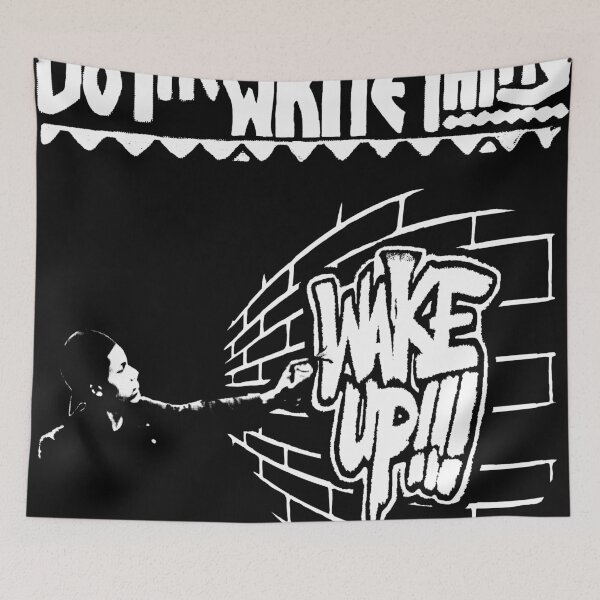 DO THE WRITE THING
WAKE
UP!!!